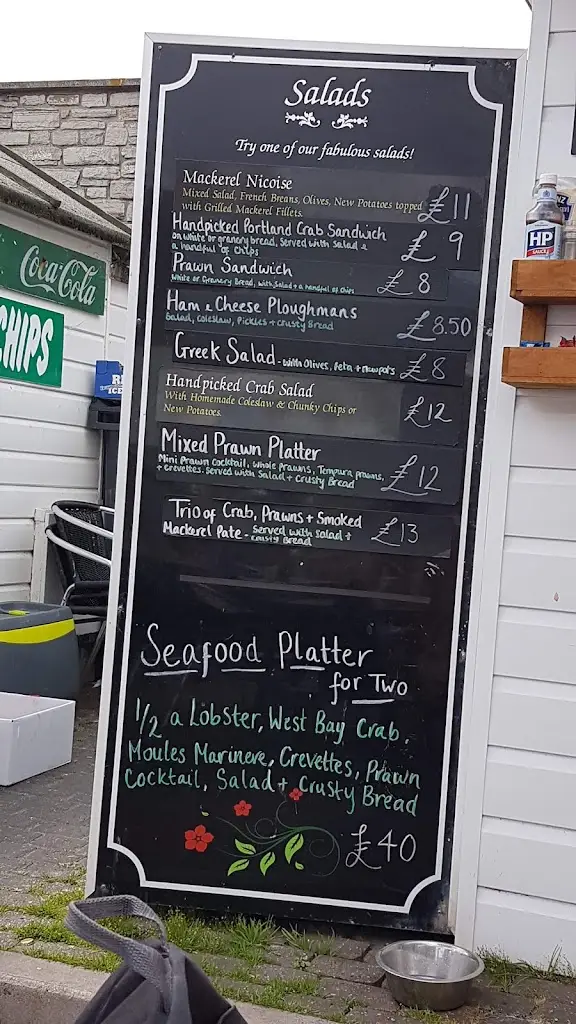 Salads
Try one of our fabulous salads!
Mackerel Nicoise
Mixed Salad, French Beans, Olives, New Potatoes topped
with Grilled Mackerel Fillets.
£11
Handpicked Portland Crab Sandwich
on white or granery bread, Served with Salad &
a handful of Chips
£9
Prawn Sandwich
White or Granery Bread, with Salad + a handful of chips
£8
Ham & Cheese Ploughmans
Salad, Coleslaw, Pickles + Crusty Bread
£8.50
Greek Salad - with Olives, Feta + new pots
£8
Handpicked Crab Salad
With Homemade Coleslaw & Chunky Chips or
New Potatoes.
£12
Mixed Prawn Platter
Mini Prawn Cocktail, whole Prawns, Tempura prawns,
+ Crevettes. Served with Salad + Crusty Bread
£12
Trio of Crab, Prawns + Smoked
Mackerel Pate - Served with Salad +
Crusty Bread
£13
Seafood Platter
for Two
1/2 a Lobster, West Bay Crab,
Moules Marinere, Crevettes, Prawn
Cocktail, Salad + Crusty Bread
£40
Coca-Cola
CHIPS
HP
SAUCE